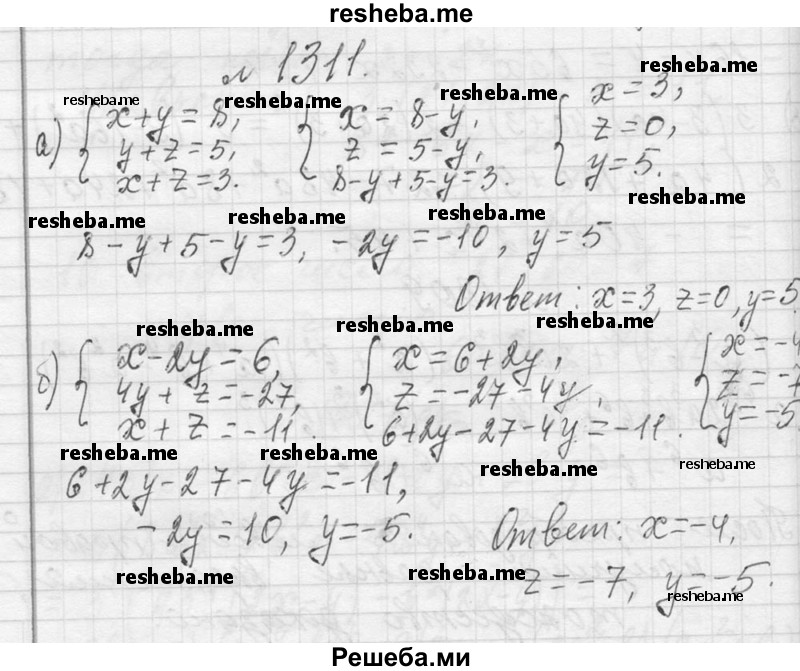 resheba.me
№ 1311.
resheba.me
resheba.me resheba.me resheba.me
а) { x+y=8, { x=8-y, { x=3,
y+z=5, z=5-y, z=0,
x+z=3. 8-y+5-y=3. y=5.
resheba.me resheba.me resheba.me resheba.me
8-y+5-y=3, -2y=-10, y=5
Ответ: x=3, z=0, y=5.
resheba.me resheba.me resheba.me
б) { x-2y=6, { x=6+2y, { x=-4
4y+z=-27, z=-27-4y, z=-7
x+z=-11. 6+2y-27-4y=-11. y=-5
resheba.me resheba.me resheba.me resheba.me
6+2y-27-4y=-11,
-2y=10, y=-5. Ответ: x=-4,
resheba.me resheba.me
z=-7, y=-5.
resheba.me
Решеба.ми